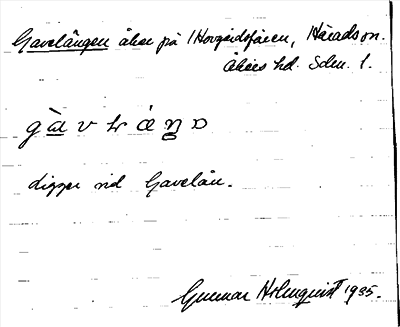 Gavelången åker på Hovgårdsfäreen, Härads sn.
Åkers hd. Sdm. 1.
gàvlrάŋɔ
ligger vid Gavelån.
Gunnar Holmquist 1935.